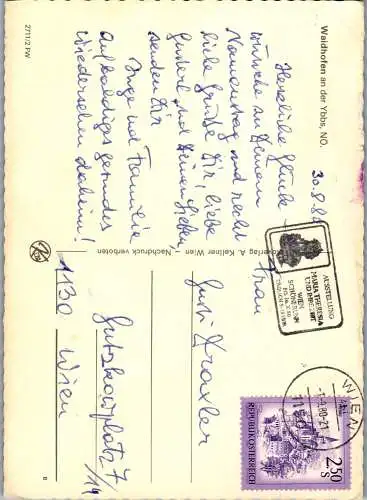 Waldhofen an der Ybbs, NÖ.
30.8.80
Herzliche Glück-
wünsche zu Deinem
Namenstag und recht
liebe Grüße Dir, liebe
Gusterl und Deinen Lieben,
senden Dir
Inge und Familie
Auf baldiges gesundes
Wiedersehen daheim!
2711/2 PW
A. Kellner Wien – Nachdruck verboten
AUSSTELLUNG
MARIA THERESIA
UND IHRE ZEIT
WIEN
SCHÖNBRUNN
WIEN
-1.9.80-21
REPUBLIK ÖSTERREICH
2.50
S
Frau
Gusti Kraxler
7
1130 Wien
B